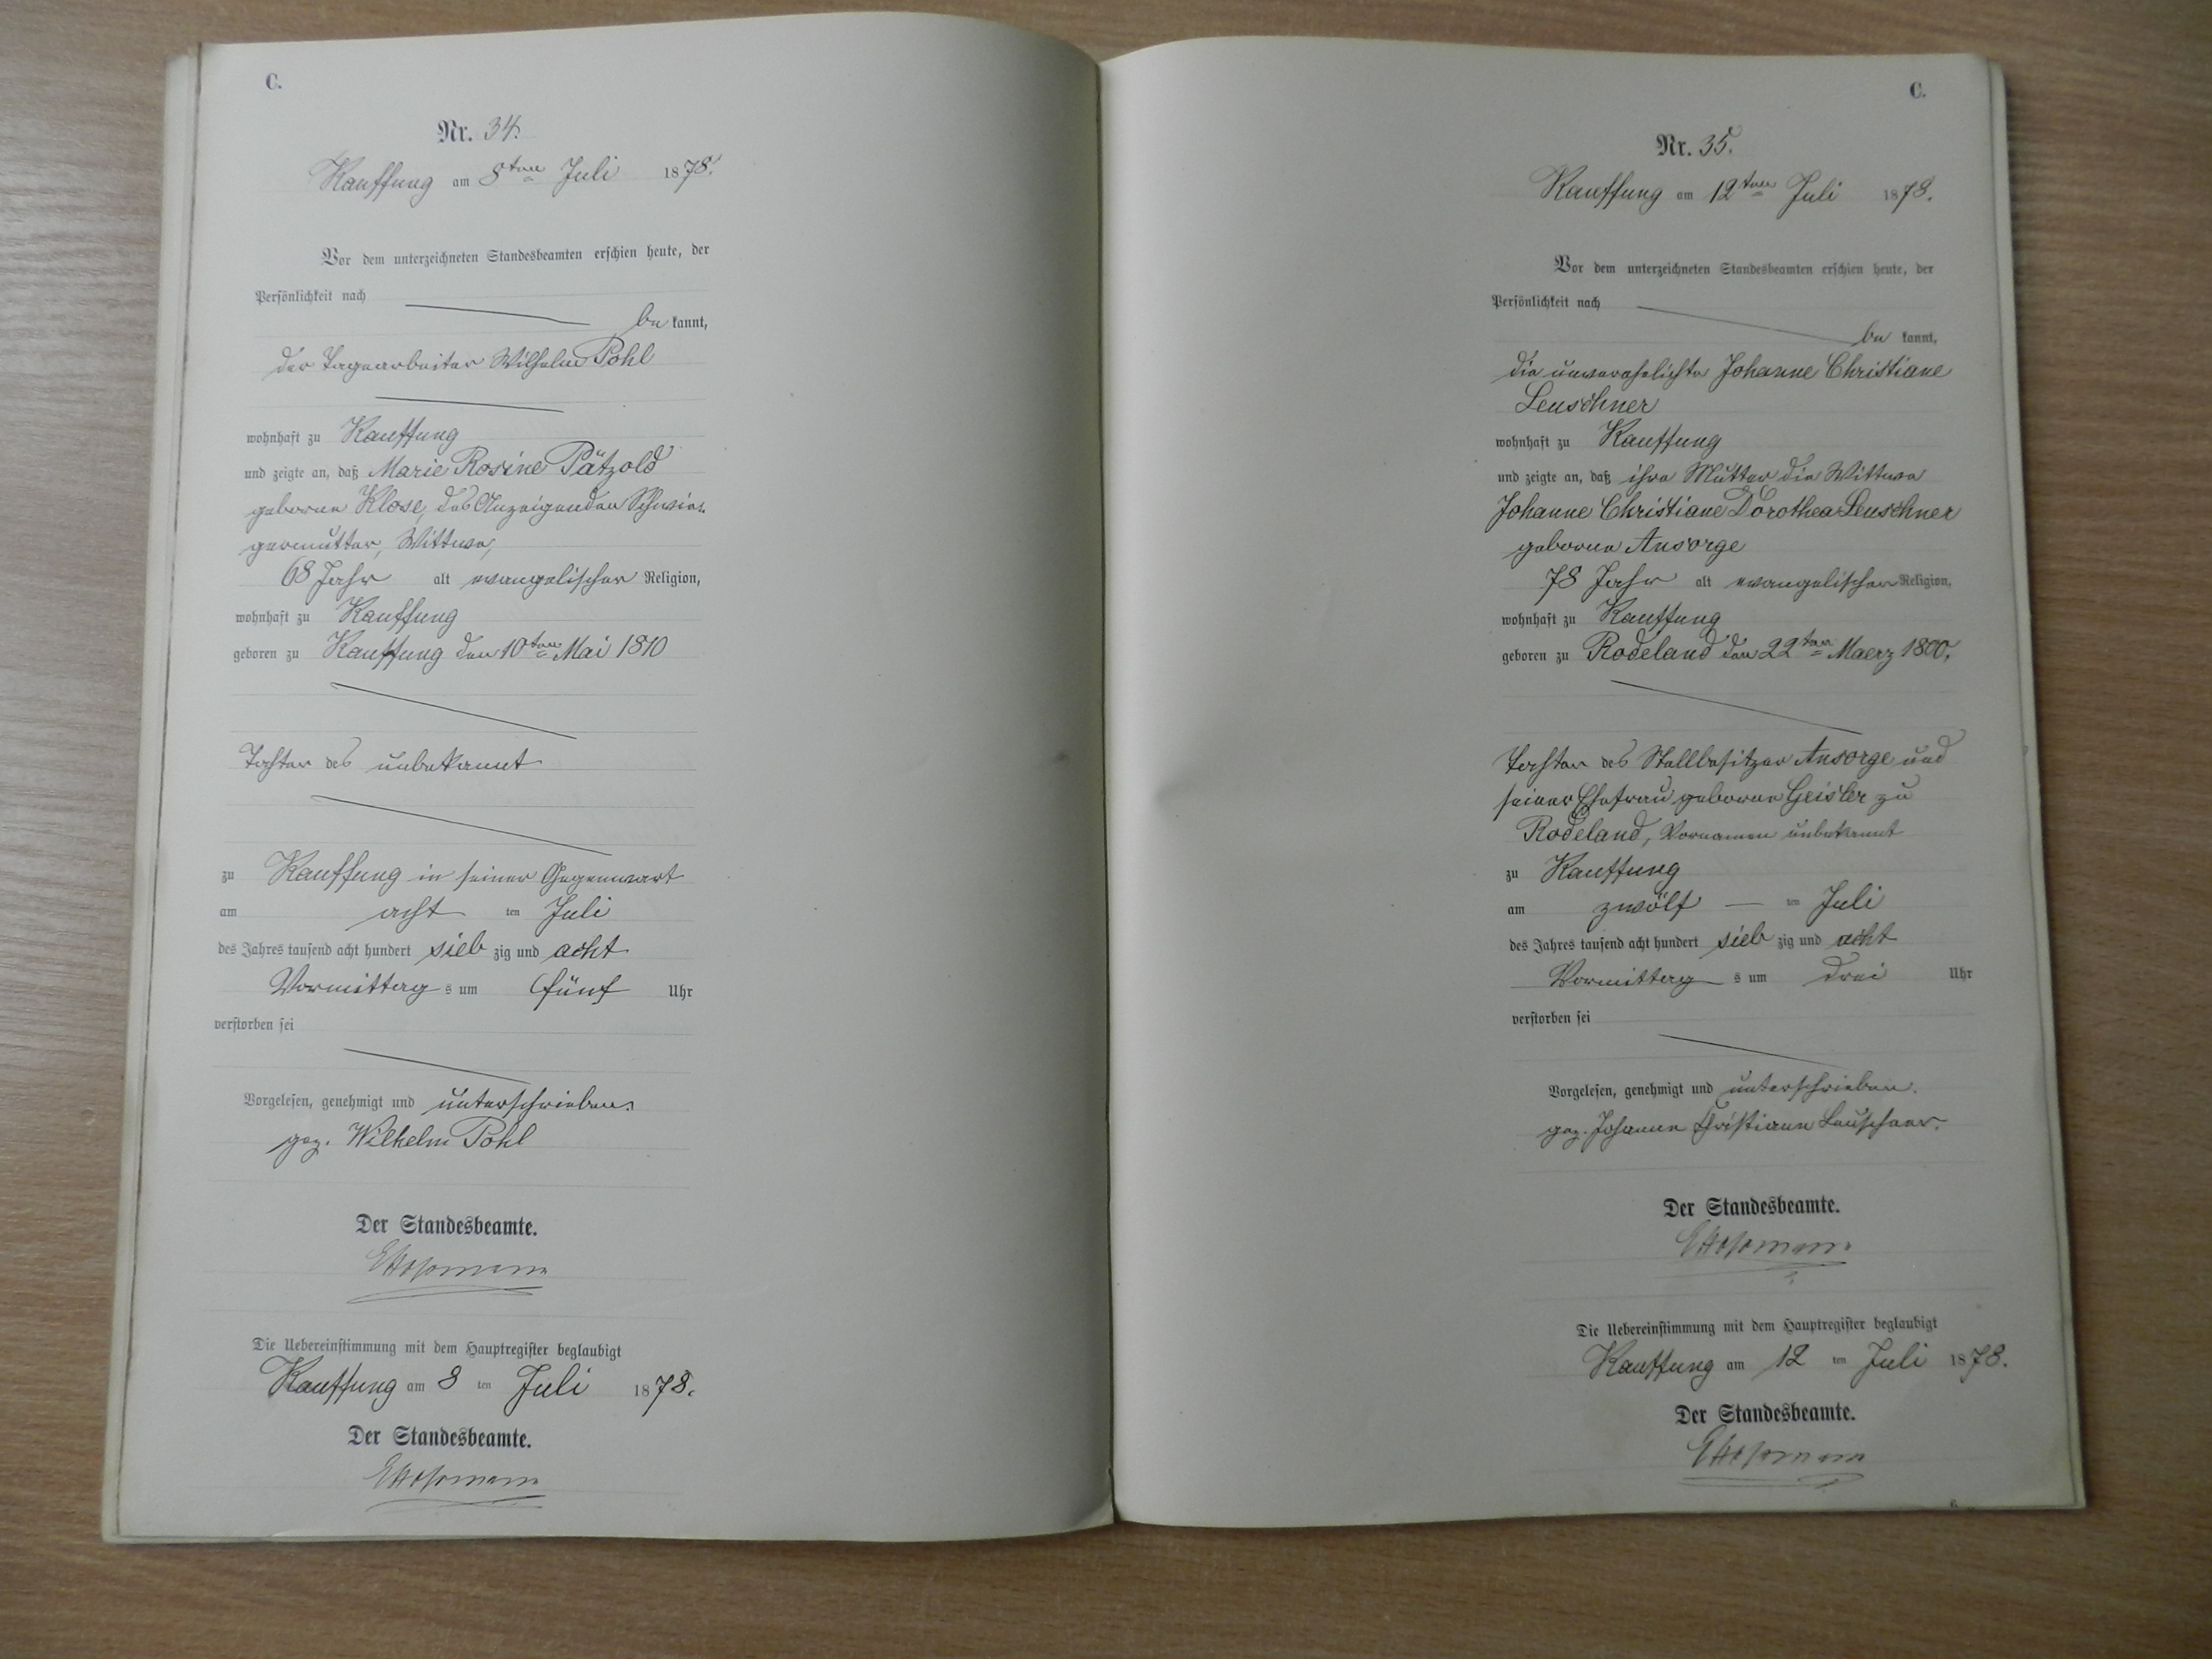 C.
Nr. 34.
Kauffung am 8ten Juli 1878.
Vor dem unterzeichneten Standesbeamten erschien heute, der
Persönlichkeit nach
be kannt,
der Tagearbeiter Wilhelm Pohl
wohnhaft zu Kauffung
und zeigte an, daß Marie Rosine Pätzold
geborne Klose, des Anzeigenden Schwie-
germutter, Wittwe,
68 Jahr alt evangelischer Religion,
wohnhaft zu Kauffung
geboren zu Kauffung den 10ten Mai 1810
Tochter des unbekannt
zu Kauffung in seiner Gegenwart
am acht ten Juli
des Jahres tausend acht hundert sieb zig und acht
Vormittag s um fünf Uhr
verstorben sei
Vorgelesen, genehmigt und unterschrieben.
gez. Wilhelm Pohl
Der Standesbeamte.
Die Uebereinstimmung mit dem Hauptregister beglaubigt
Kauffung am 8 ten Juli 1878.
Der Standesbeamte.
C.
Nr. 35.
Kauffung am 12ten Juli 1878.
Vor dem unterzeichneten Standesbeamten erschien heute, der
Persönlichkeit nach
be kannt,
die unverehelichte Johanne Christiane
Leuschner
wohnhaft zu Kauffung
und zeigte an, daß ihre Mutter die Wittwe
Johanne Christiane Dorothea Leuschner
geborne Ansorge
78 Jahr alt evangelischer Religion,
wohnhaft zu Kauffung
geboren zu Rodeland den 22ten Maerz 1800.
Tochter des Stellbesitzer Ansorge und
seiner Ehefrau geborne Geisler zu
Rodeland, Vornamen unbekannt
zu Kauffung
am zwölf ten Juli
des Jahres tausend acht hundert sieb zig und acht
Vormittag s um drei Uhr
verstorben sei
Vorgelesen, genehmigt und unterschrieben.
gez. Johanne Christiane Leuschner.
Der Standesbeamte.
Die Uebereinstimmung mit dem Hauptregister beglaubigt
Kauffung am 12 ten Juli 1878.
Der Standesbeamte.